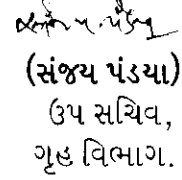 (સંજય પંડયા)
ઉપ સચિવ,
ગૃહ વિભાગ.